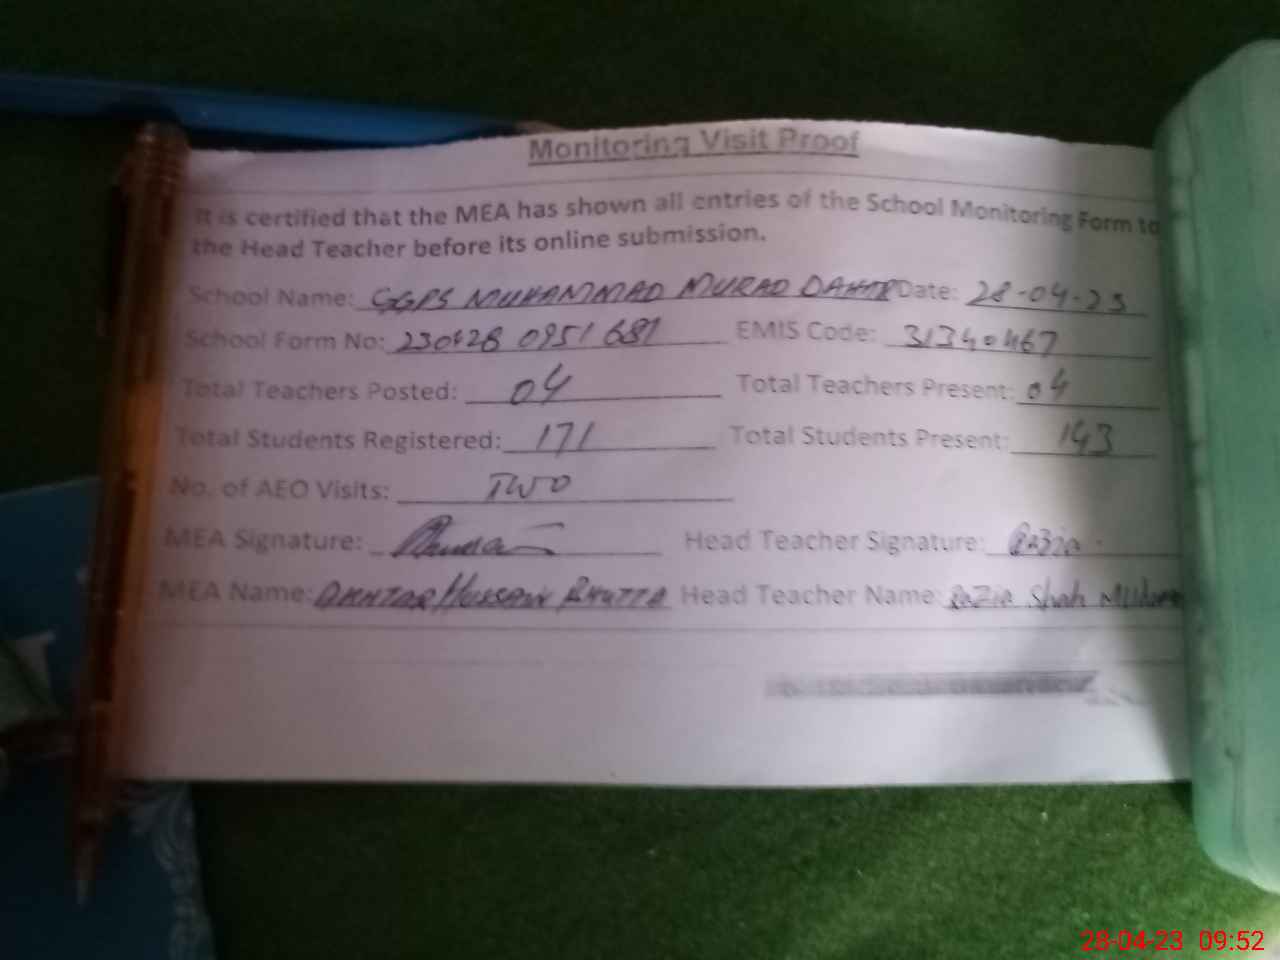 Monitoring Visit Proof
It is certified that the MEA has shown all entries of the School Monitoring Form to
the Head Teacher before its online submission.
School Name: GGPS MUHAMMAD MURAD DAHAR Date: 28-04-23
School Form No: 230428 0951 681 EMIS Code: 31340467
Total Teachers Posted: 04 Total Teachers Present: 04
Total Students Registered: 171 Total Students Present: 143
No. of AEO Visits: TWO
MEA Signature: Head Teacher Signature: Razia
MEA Name: AKHTAR HUSSAIN BHUTTA Head Teacher Name: Razia Shah
28-04-23 09:52